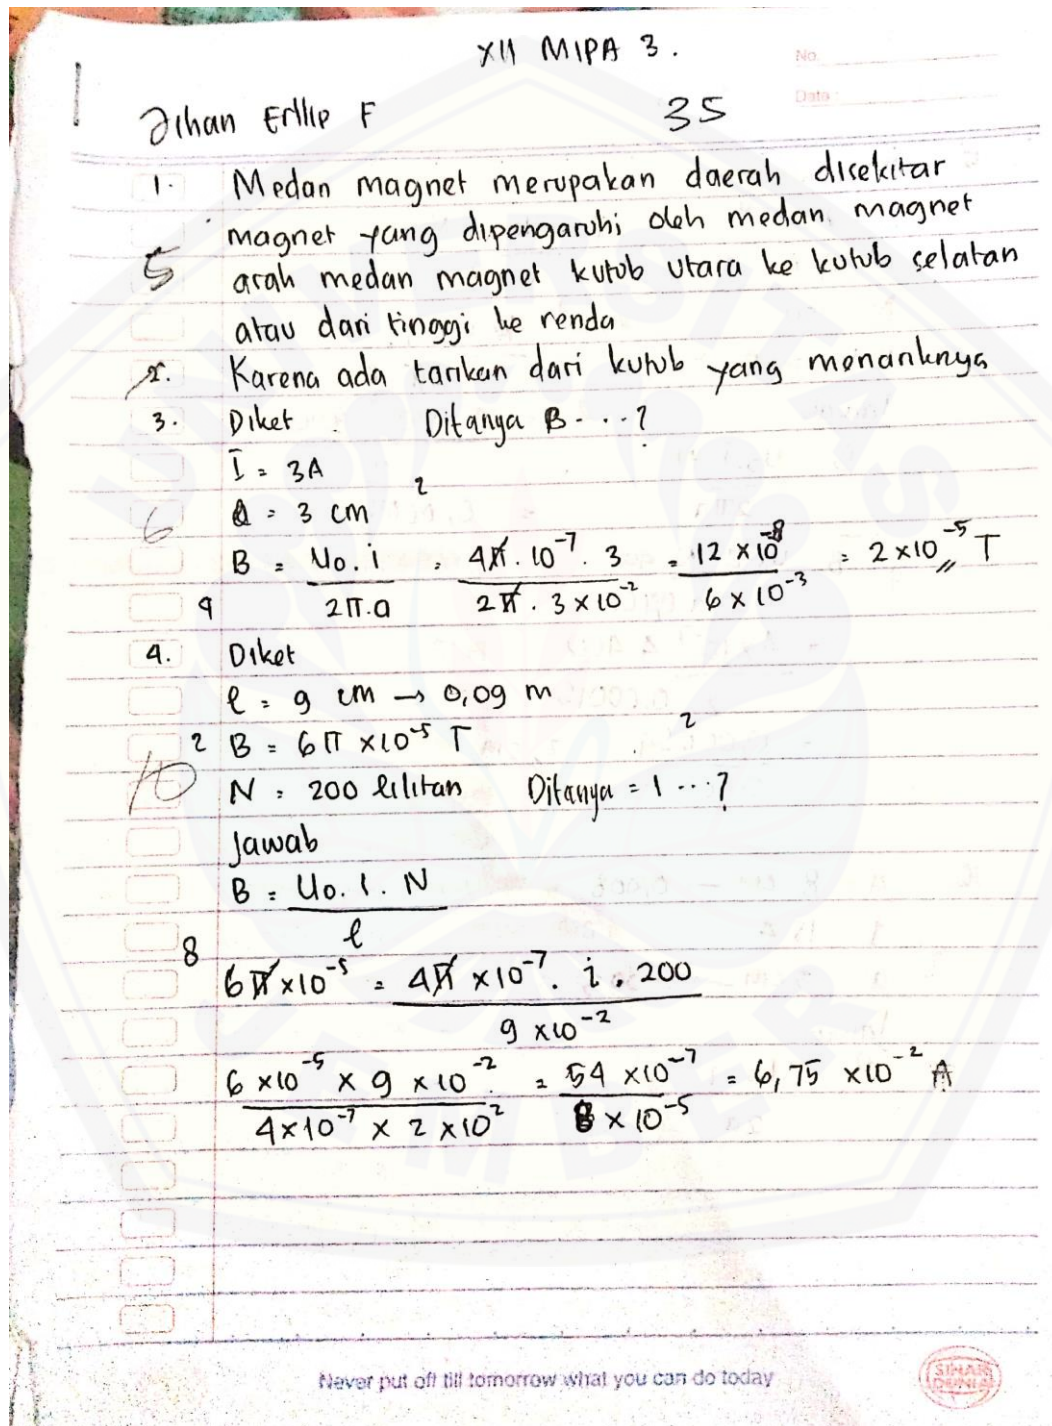 XII MIPA 3.
No.
Date :
Jihan Erllip F 35
1. Medan magnet merupakan daerah disekitar
magnet yang dipengaruhi oleh medan magnet
5 arah medan magnet kutub utara ke kutub selatan
atau dari tinggi ke renda
2. Karena ada tarikan dari kutub yang menariknya
3. Diket Ditanya B...?
I = 3A
a = 3 cm 2
6
B = μo. i / 2π.a = 4π. 10⁻⁷. 3 / 2π. 3 x 10⁻² = 12 x 10⁻⁸ / 6 x 10⁻³ = 2 x 10⁻⁵ T
4
4. Diket
l = 9 cm → 0,09 m
2 B = 6π x10⁻⁵ T 2
10 N = 200 lilitan Ditanya = I ...?
Jawab
B = μo. I. N / l
8
6π x10⁻⁵ = 4π x10⁻⁷. i. 200 / 9 x10⁻²
6 x10⁻⁵ x 9 x10⁻² / 4x10⁻⁷ x 2 x10² = 54 x10⁻⁷ / 8 x 10⁻⁵ = 6,75 x10⁻² A
Never put off till tomorrow what you can do today
SINAR DUNIA